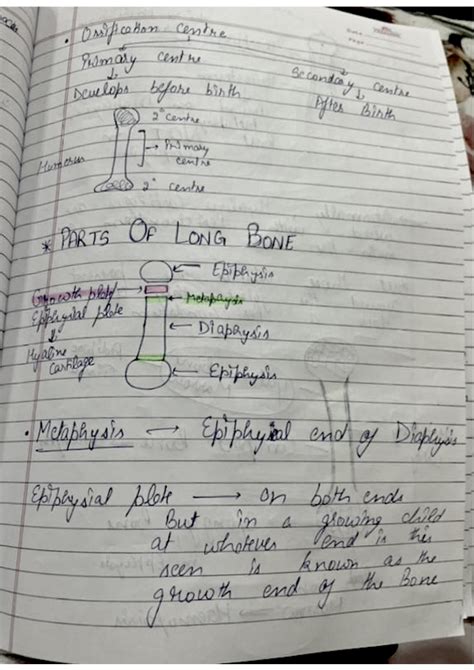 • Ossification centre
Primary centre
Secondary centre
Develops before birth
After Birth
2° centre
Humerus
Primary
centre
2° centre
* PARTS OF LONG BONE
Epiphysis
Growth plate/
Metaphysis
Epiphysial plate
Diaphysis
Hyaline
cartilage
Epiphysis
• Metaphysis → Epiphysial end of Diaphysis
Epiphysial plate → on both ends
But in a growing child
at whatever end is this
seen is known as the
growth end of the Bone